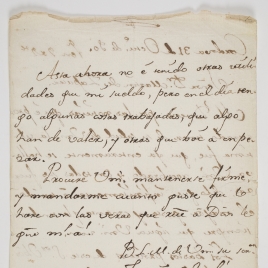 31 de
Asta ahora no é tenido otras utili
dades que mi sueldo, pero en el dia ten
go algunas cosas trabajadas, que algo
han de valer, y otras que boi á enpe
zar.
Procure Vm. mantenerse firme,
y mandarme cuanto guste que lo
haré con las veras que pide á Dios le
gue m. a.
B. L. M. de Vm. su